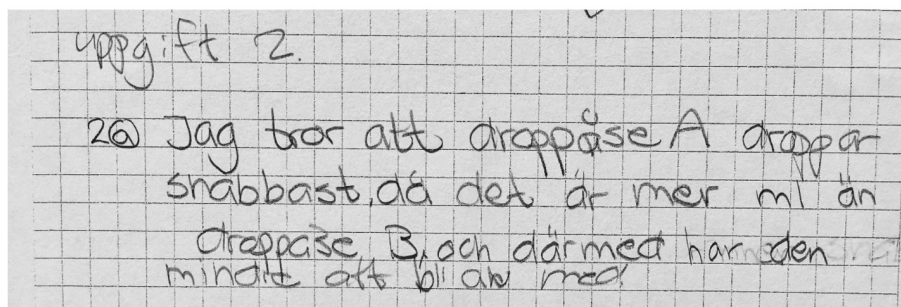 uppgift 2.
2a) Jag tror att droppåse A droppar
snabbast, då det är mer ml än
droppåse B, och därmed har den
mindre att bli av med.